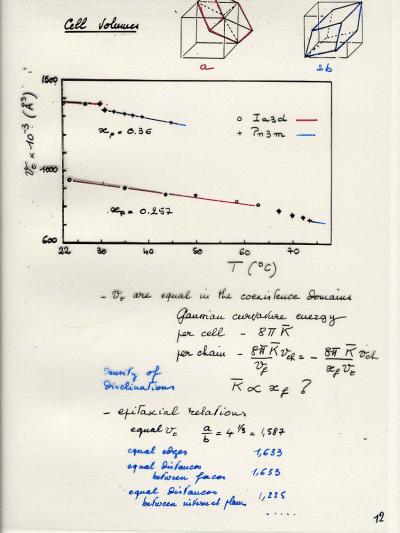 Cell Volumes
a
2b
1500
v_t × 10⁻³ (Å³)
○ Ia3d
+ Pn3m
x_p = 0.36
1000
x_p = 0.257
600
22 30 40 50 60 70
T (°C)
- v_t are equal in the coexistence domains
Gaussian curvature energy
per cell - 8π K̄
per chain - 8π K̄/v_f v_ch = - 8π K̄/x_f v_t v_ch
density of
disclinations
K̄ ∝ x_f ?
- epitaxial relations
equal v_t a/b = 4^1/3 = 1,587
equal edges 1,633
equal distances
between faces 1,633
equal distances
between internet planes 1,225
.....
12